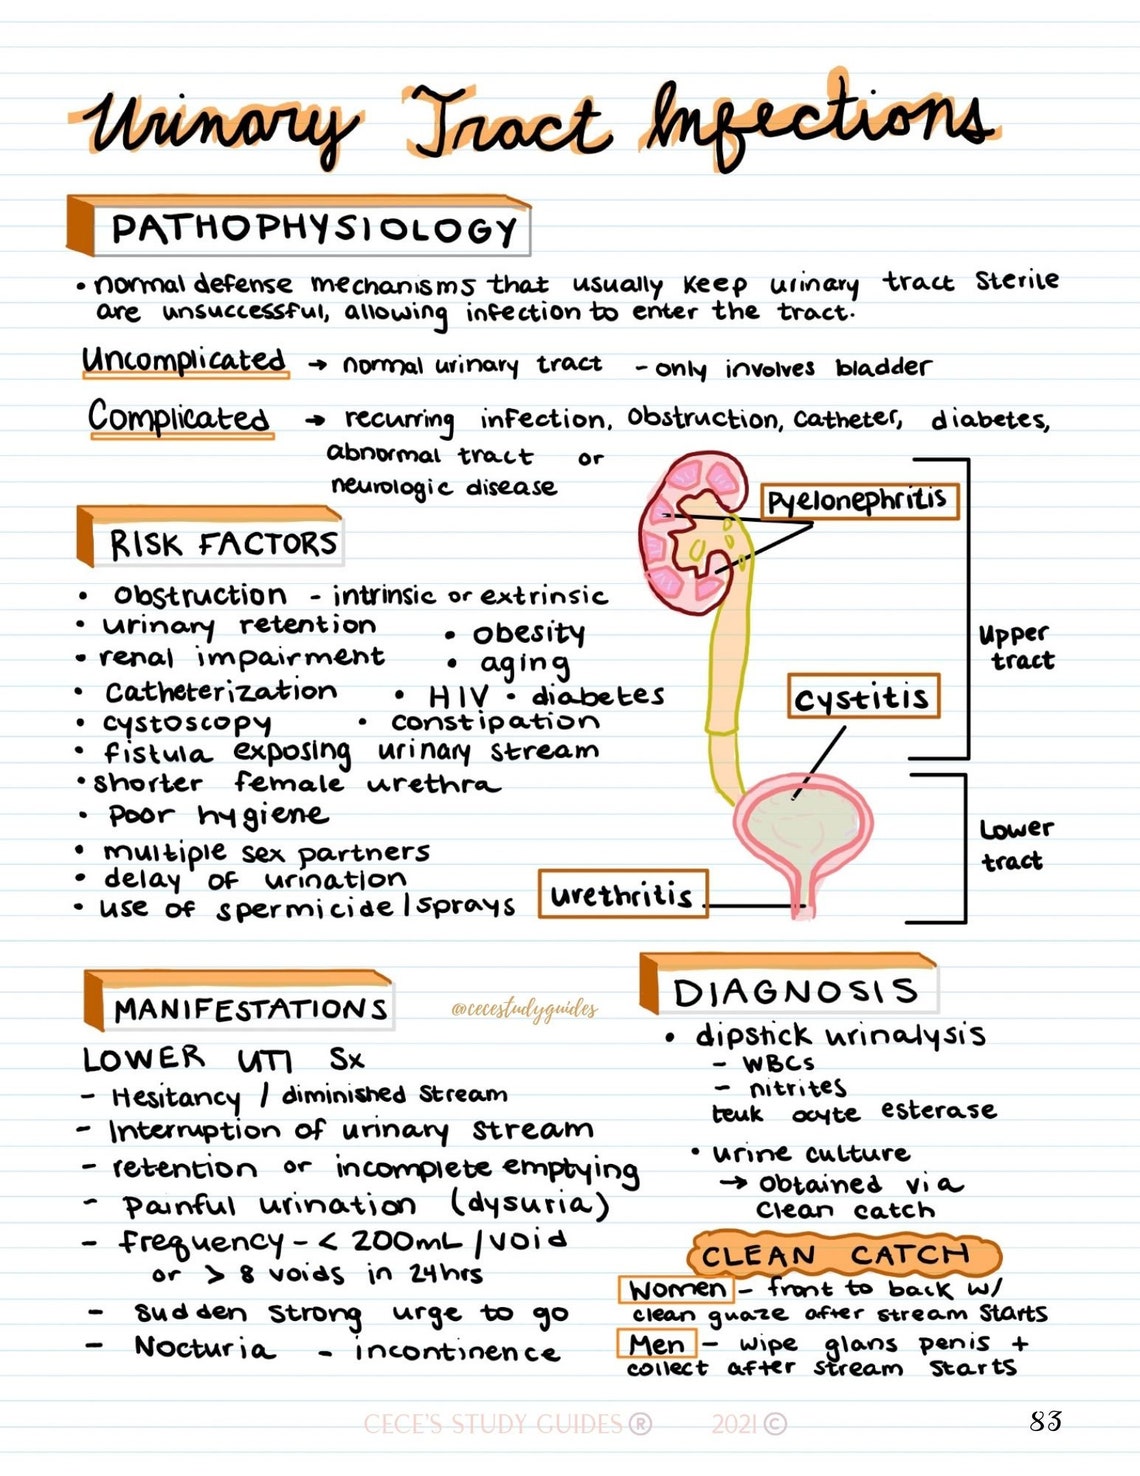 Urinary Tract Infections
PATHOPHYSIOLOGY
• normal defense mechanisms that usually keep urinary tract sterile
are unsuccessful, allowing infection to enter the tract.
Uncomplicated → normal urinary tract - only involves bladder
Complicated → recurring infection, obstruction, catheter, diabetes,
abnormal tract or
neurologic disease
RISK FACTORS
• obstruction - intrinsic or extrinsic
• urinary retention
• obesity
• renal impairment
• aging
• catheterization
• HIV • diabetes
• cystoscopy
• constipation
• fistula exposing urinary stream
• shorter female urethra
• poor hygiene
• multiple sex partners
• delay of urination
• use of spermicide/sprays
Pyelonephritis
Upper
tract
Cystitis
Lower
tract
Urethritis
MANIFESTATIONS
@cecestudyguides
LOWER UTI Sx
- Hesitancy / diminished stream
- Interruption of urinary stream
- retention or incomplete emptying
- Painful urination (dysuria)
- frequency - < 200mL /void
or > 8 voids in 24hrs
- sudden strong urge to go
- Nocturia - incontinence
DIAGNOSIS
• dipstick urinalysis
- WBCs
- nitrites
leuk ocyte esterase
• urine culture
→ obtained via
clean catch
CLEAN CATCH
Women - front to back w/
clean guaze after stream starts
Men - wipe glans penis +
collect after stream starts
CECE'S STUDY GUIDES ® 2021 ©
83